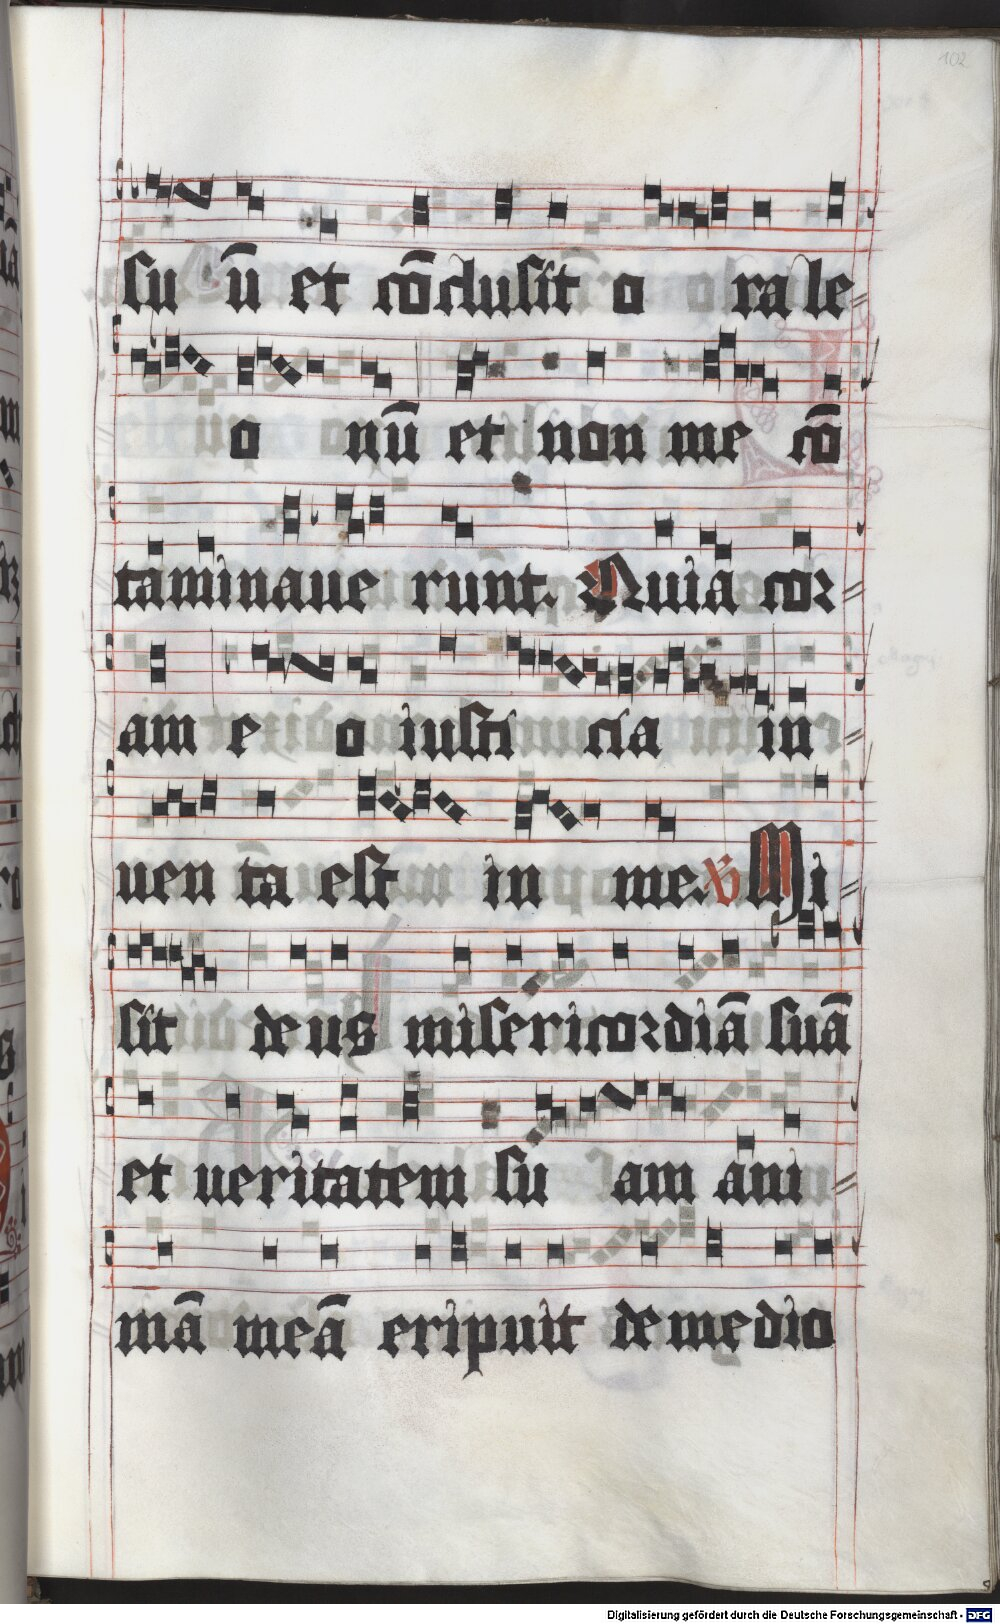 102
su ū et cōclusit o ra le
o nū et non me cō
taminaue runt. Quia cor
am e o iusti cia in
uen ta est in me. V̄ Mi
sit deus misericordiā suā
et ueritatem su am ani
mā meā eripuit de medio
Digitalisierung gefördert durch die Deutsche Forschungsgemeinschaft - DFG